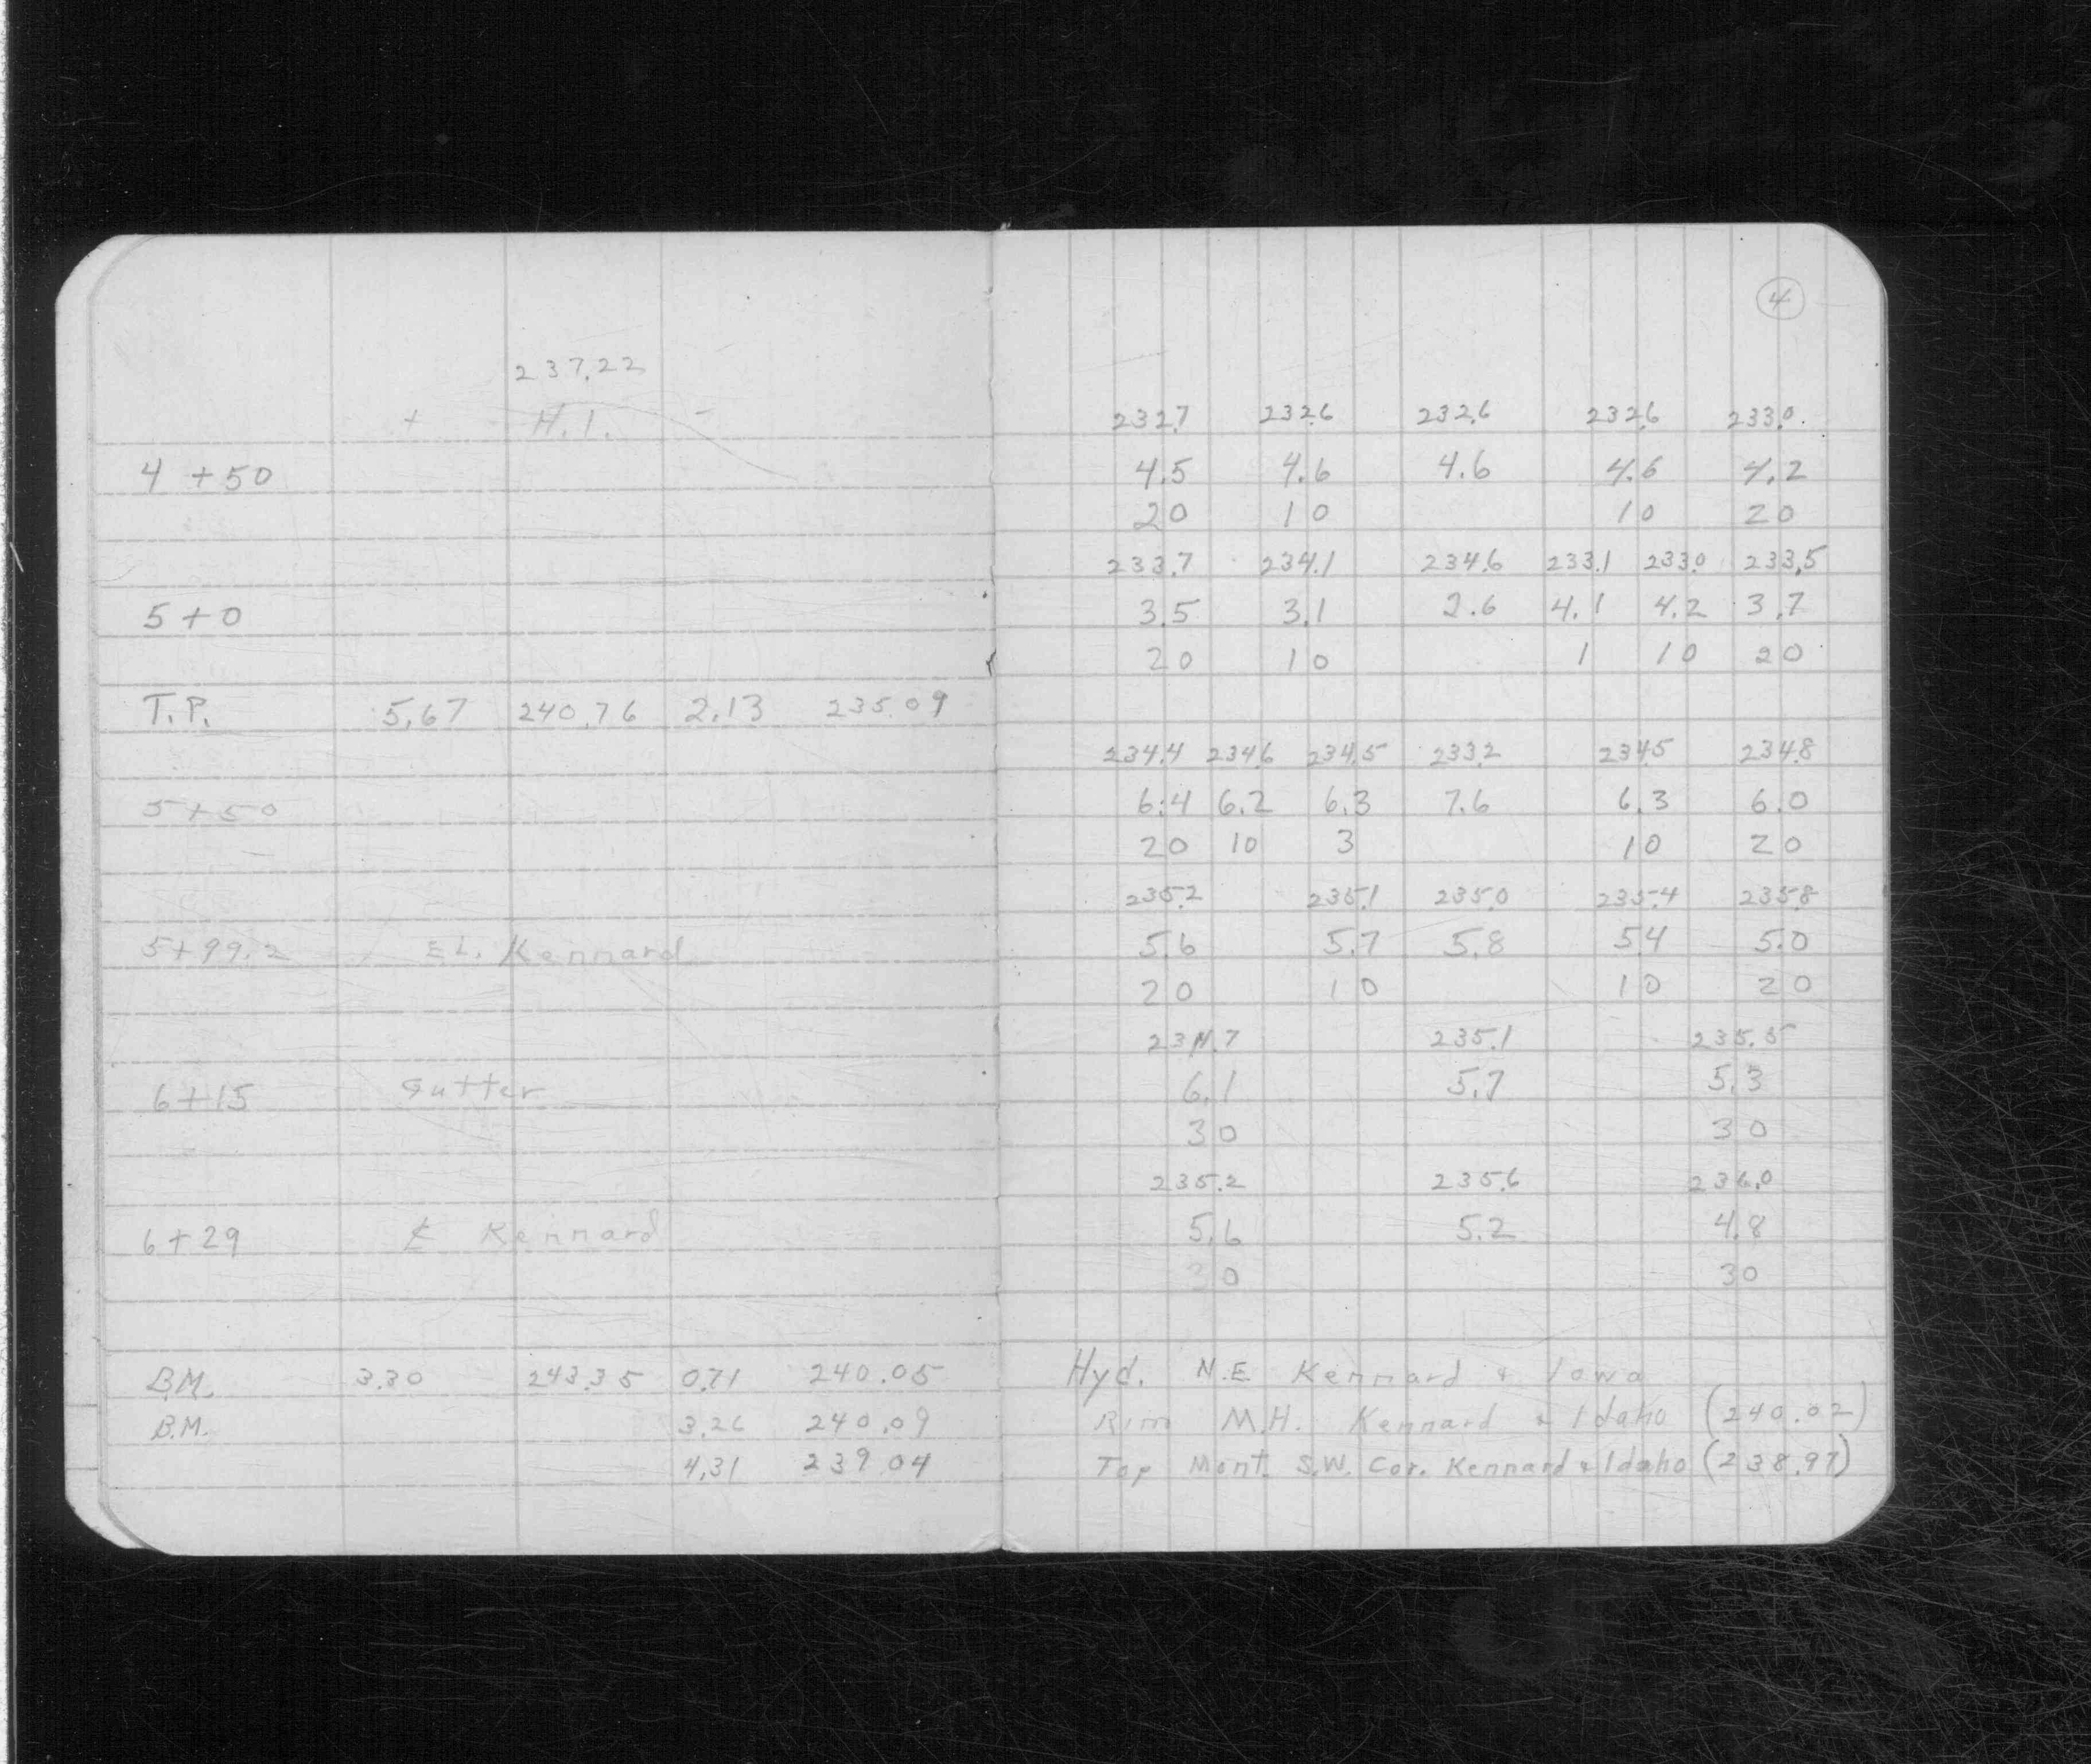 4
237.22
+ H.I. -
232.7 232.6 232.6 232.6 233.0
4+50 4.5 4.6 4.6 4.6 4.2
20 10 10 20
233.7 234.1 234.6 233.1 233.0 233.5
5+0 3.5 3.1 2.6 4.1 4.2 3.7
20 10 1 10 20
T.P. 5.67 240.76 2.13 235.09
234.4 234.6 234.5 233.2 234.5 234.8
5+50 6.4 6.2 6.3 7.6 6.3 6.0
20 10 3 10 20
235.2 235.1 235.0 235.4 235.8
5+99.2 EL. Kennard 5.6 5.7 5.8 5.4 5.0
20 10 10 20
234.7 235.1 235.5
6+15 Gutter 6.1 5.7 5.3
30 30
235.2 235.6 236.0
6+29 ℄ Kennard 5.6 5.2 4.8
30 30
B.M. 3.30 243.35 0.71 240.05 Hyd. N.E Kennard & Iowa
B.M. 3.26 240.09 Rim M.H. Kennard & Idaho (240.02)
4.31 239.04 Top Mont. S.W. Cor. Kennard & Idaho (238.97)